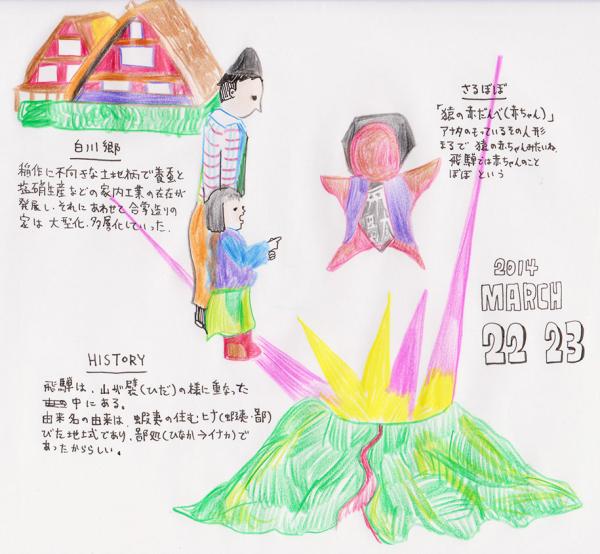 白川郷
稲作に不向きな土地柄で養蚕と
塩硝生産などの家内工業の存在が
発展し、それにあわせて合掌造りの
家は大型化、多層化していった。
さるぼぼ
「猿の赤だんべ(赤ちゃん)」
アナタのもっているその人形
まるで猿の赤ちゃんみたいね。
飛騨では赤ちゃんのこと
ぼぼという
2014
MARCH
22 23
HISTORY
飛騨は、山が襞(ひだ)の様に重なった
中にある。
由来名の由来は、蝦夷の住むヒナ(蝦夷・鄙)
びた地式であり、鄙処(ひなか→イナカ)で
あったかららしい。